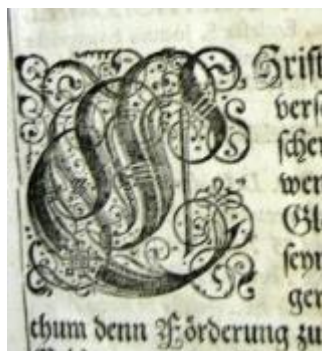 CHriſt
verſ
ſchen
wer
Gl
ſeyn
ger
thum denn Förderung zu